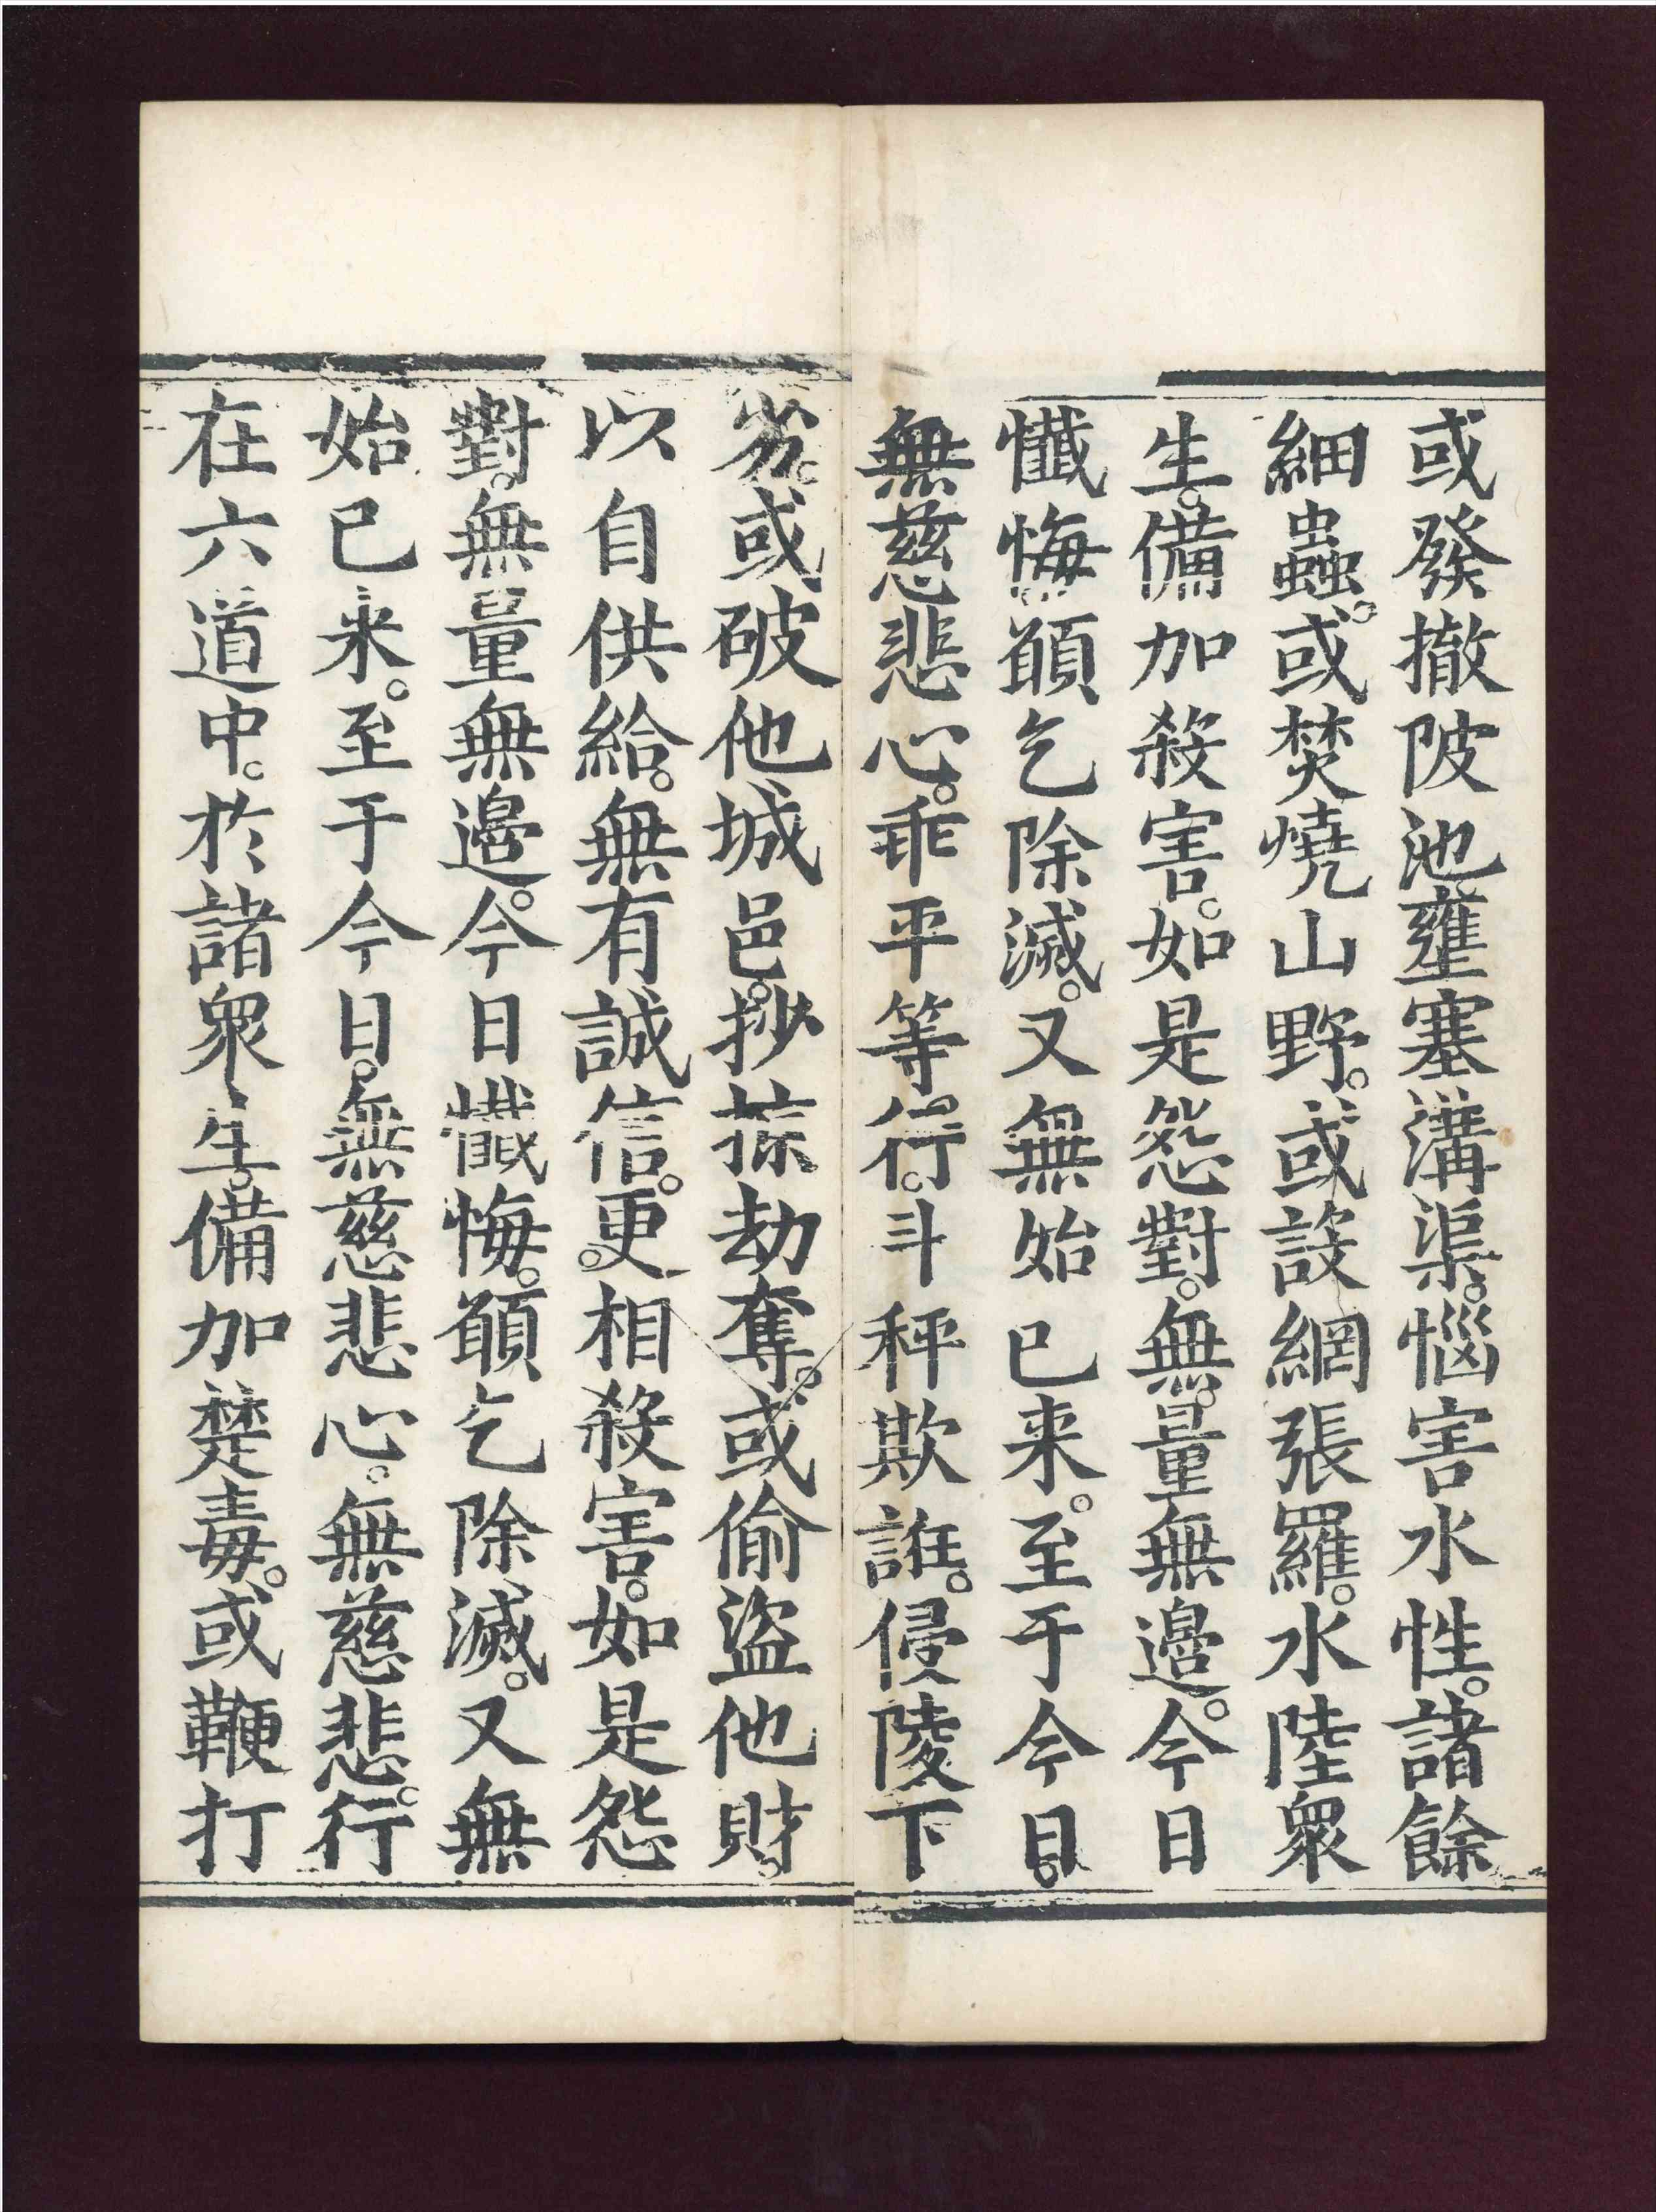 或發撤陂池壅塞溝渠。惱害水性。諸餘
細蟲。或焚燒山野。或設網張羅。水陸衆
生。備加殺害。如是怨對。無。量無邊。今日
懺悔願乞除滅。又無始已来。至于今日。
無慈悲心。乖平等行。斗秤欺誑。侵陵下
劣。或破他城邑。抄掠劫奪。或偷盜他財。
以自供給。無有誠信。更。相殺害。如是怨
對。無量無邊。今日懺悔。願乞除滅。又無
始已来。至于今日。無慈悲心。無慈悲。行
在六道中。於諸衆生。備加楚毒。或鞭打